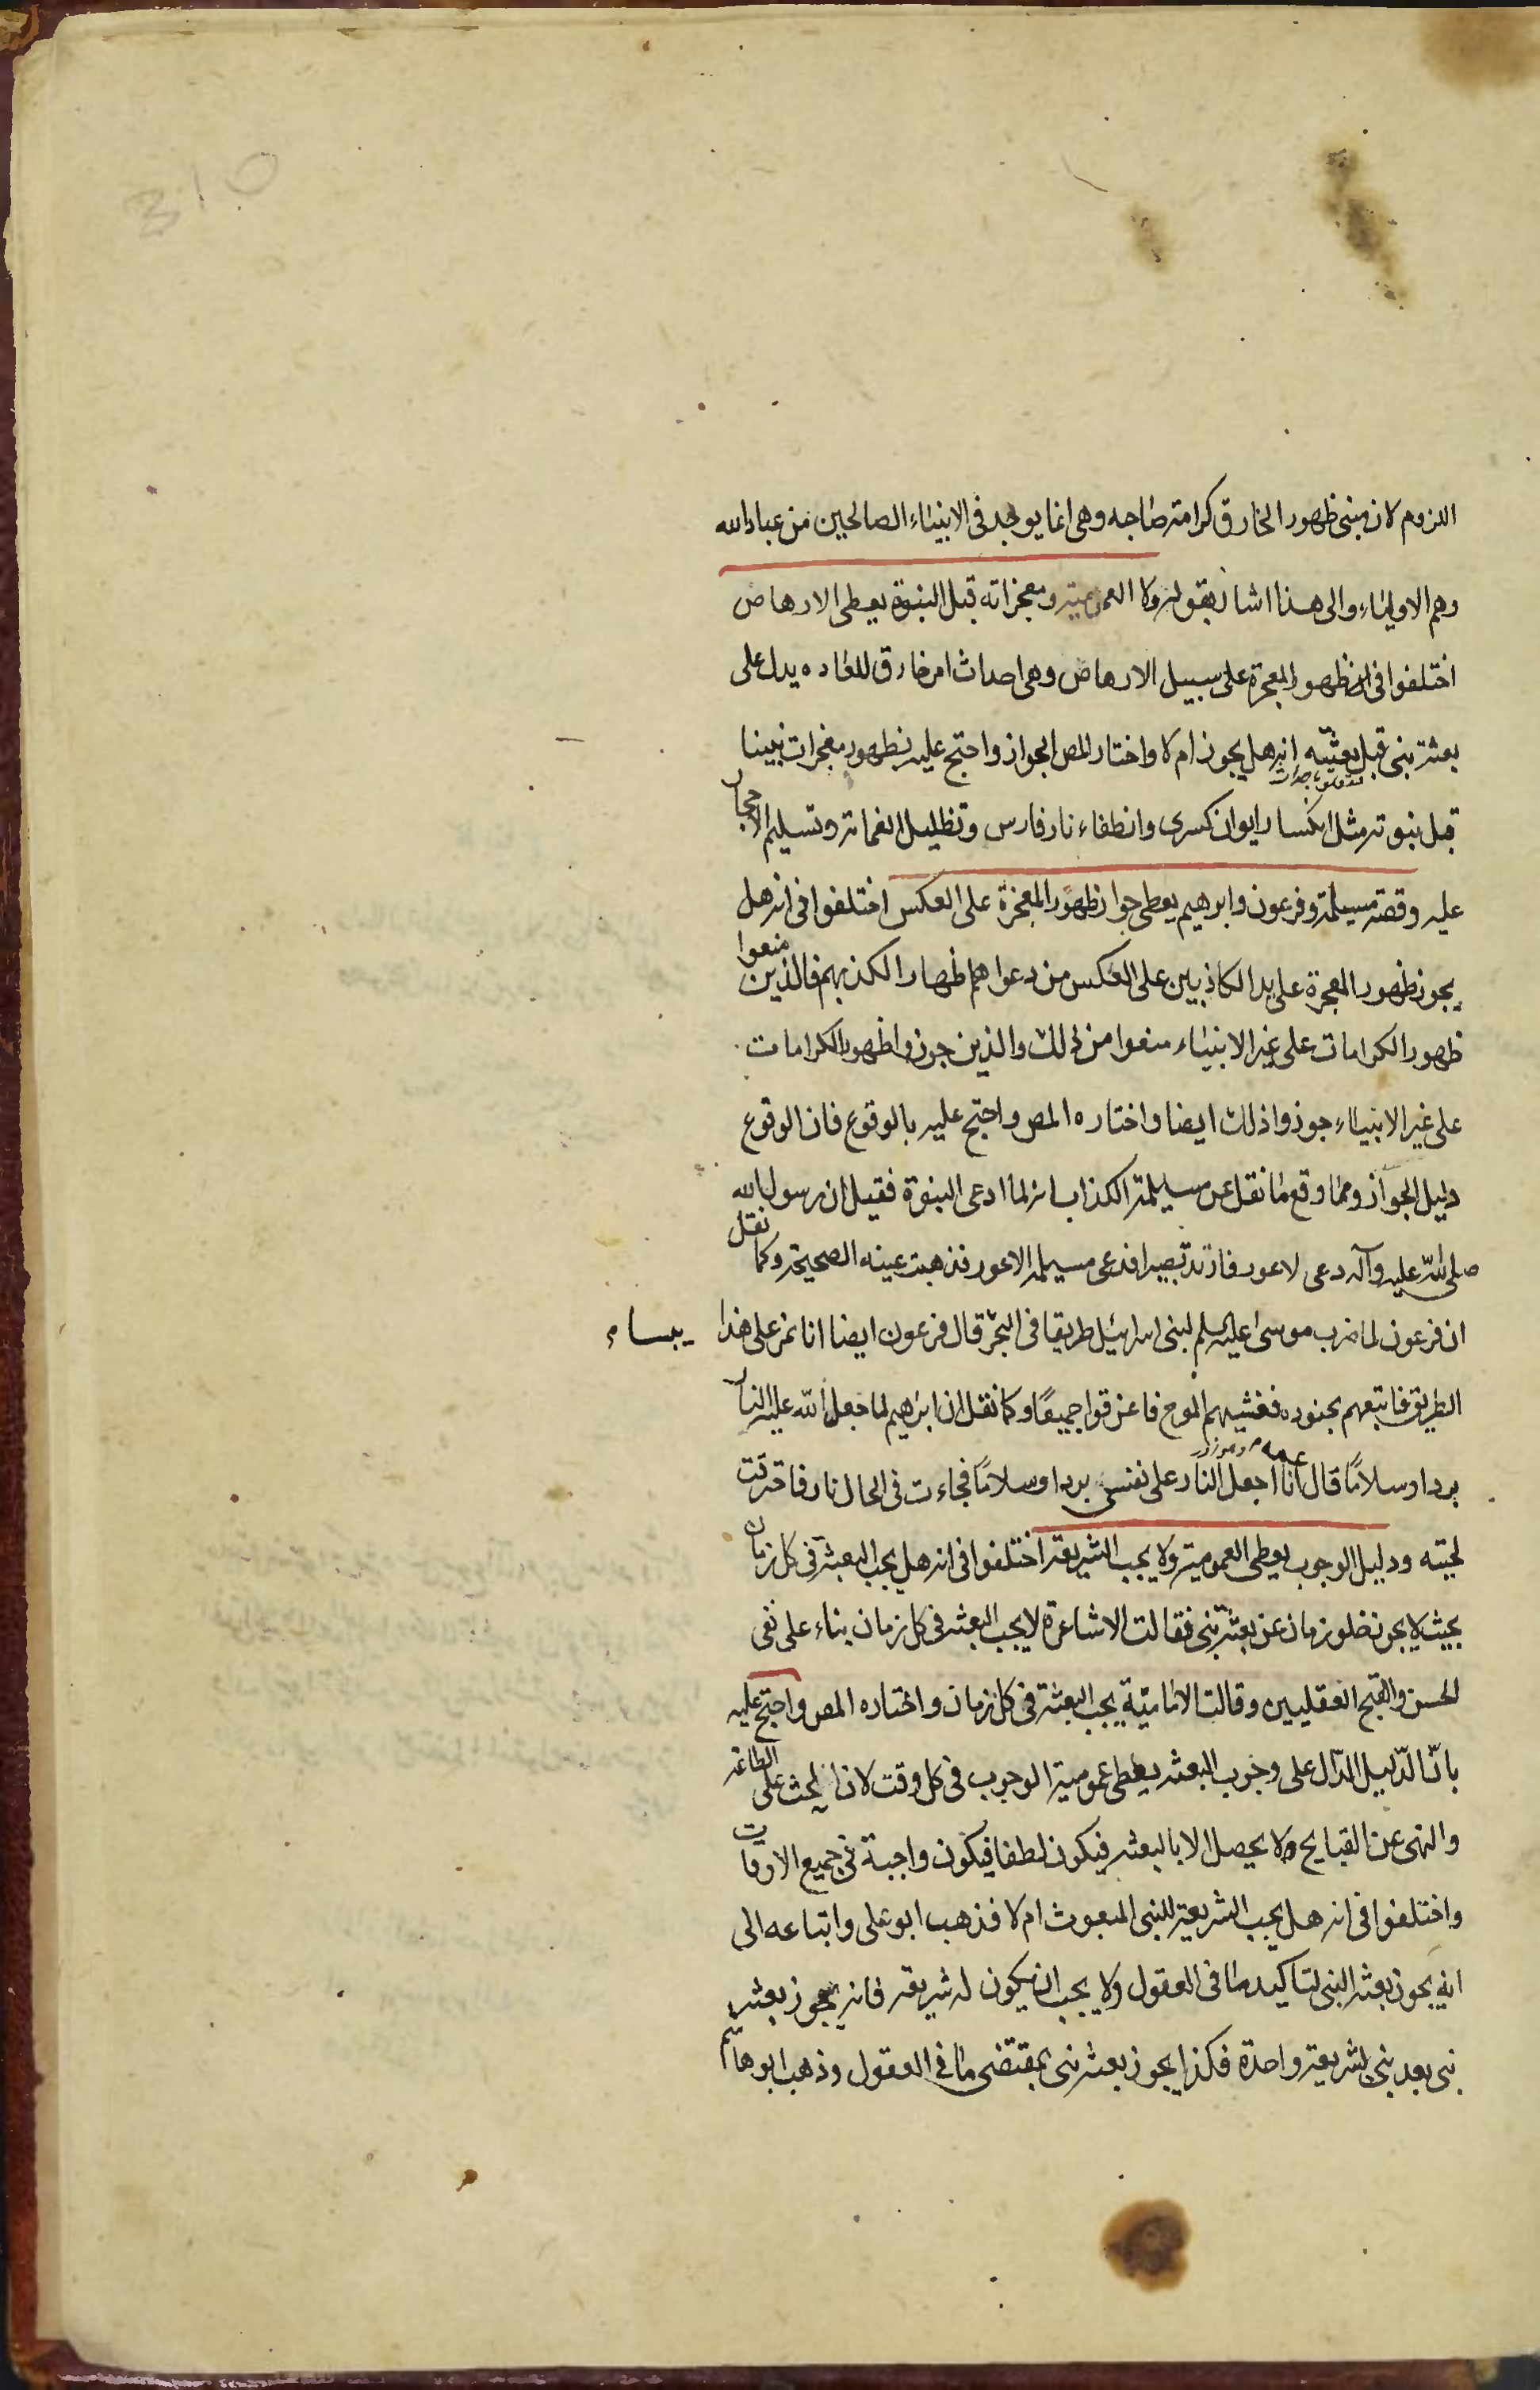 اللزوم لان مبنى ظهور الخارق كرامة صاحبه وهى انما يوجد فى الانبياء الصالحين من عباد الله
وهم الاولياء والى هذا اشار بقوله ولا العمومية ومعجزاته قبل النبوة يعطى الارهاص
اختلفوا فى ان ظهور المعجزة على سبيل الارهاص وهى احداث امر خارق للعاده يدل على
بعثة نبى قبل بعثته انه هل يجوز ام لا واختار المص الجواز واحتج عليه بظهور معجزات نبينا
قبل نبوته مثل انكسار ايوان كسرى وانطفاء نار فارس وتظليل الغمامة وتسليم الاحجار
عليه وقصة مسيلمة وفرعون وابرهيم يعطى جواز ظهور المعجزة على العكس اختلفوا فى انه هل
يجوز ظهور المعجزة على يد الكاذبين على العكس من دعواهم اظهارا لكذبهم فالذين منعوا
ظهور الكرامات على غير الانبياء منعوا من ذلك والذين جوزوا ظهور الكرامات
على غير الانبياء جوزوا ذلك ايضا واختاره المص واحتج عليه بالوقوع فان الوقوع
دليل الجواز ومما وقع ما نقل عن مسيلمة الكذاب انه لما ادعى النبوة فقيل ان رسول الله
صلى الله عليه وآله دعى لاعور فارتد بصيرا فدعى مسيلمة الاعور فذهبت عينه الصحيحة وكما نقل
ان فرعون لما ضرب موسى عليه السلم لبنى اسرائيل طريقا فى البحر قال فرعون ايضا انا نمر على هذا
الطريق فاتبعهم بجنوده فغشيهم الموج فاغرقوا جميعًا وكما نقل ان ابرهيم لما جعل الله عليه النار
بردا وسلامًا قال عمه انا اجعل النار على نفسى بردا وسلامًا فجاءت فى الحال نار فاحرقت
لحيته ودليل الوجوب يعطى العمومية ولا يجب الشريعة اختلفوا فى انه هل يجب البعثة فى كل زمان
بحيث لا يجوز خلو زمان عن بعثة نبى فقالت الاشاعرة لا يجب البعثه فى كل زمان بناء على نفى
الحسن والقبح العقليين وقالت الامامية يجب البعثة فى كل زمان واختاره المص واحتج عليه
بان الدليل الدال على وجوب البعثه يعطى عمومية الوجوب فى كل وقت لان الحث على الطاعه
والنهى عن القبايح ولا يحصل الا بالبعثه فيكون لطفا فيكون واجبة فى جميع الاوقات
واختلفوا فى انه هل يجب الشريعة للنبى المبعوث ام لا فذهب ابو على واتباعه الى
انه يجوز بعثه النبى لتاكيد ما فى العقول ولا يجب ان يكون له شريعه فانه يجوز بعثه
نبى بعد نبى بشريعة واحدة فكذا يجوز بعثه نبى بمقتضى ما فى العقول وذهب ابو هاشم